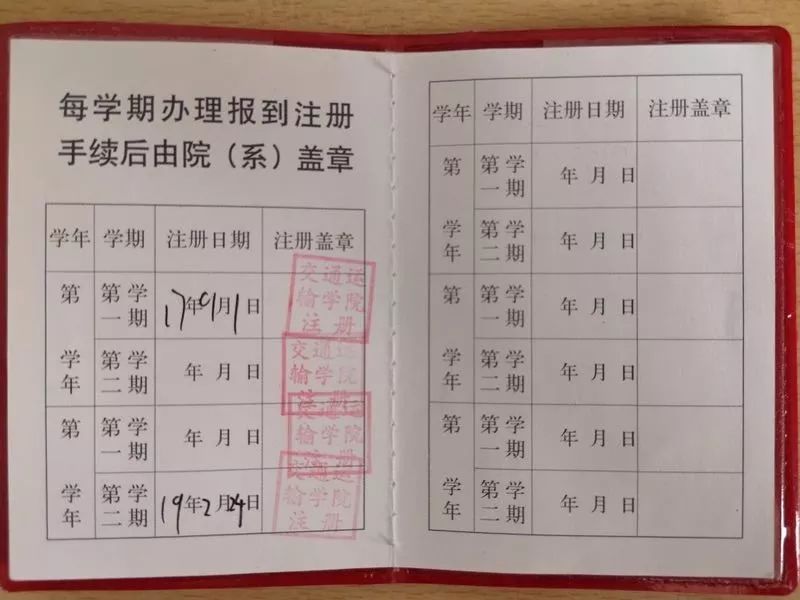 每学期办理报到注册
手续后由院（系）盖章
学年 学期 注册日期 注册盖章
第 学年 第一学期 17年9月1日
交通运
输学院
注册
第二学期 年 月 日
交通运
输学院
注册
第 学年 第一学期 年 月 日
交通运
输学院
注册
第二学期 19年2月24日
交通运
输学院
注册
学年 学期 注册日期 注册盖章
第 学年 第一学期 年 月 日
第二学期 年 月 日
第 学年 第一学期 年 月 日
第二学期 年 月 日
第 学年 第一学期 年 月 日
第二学期 年 月 日